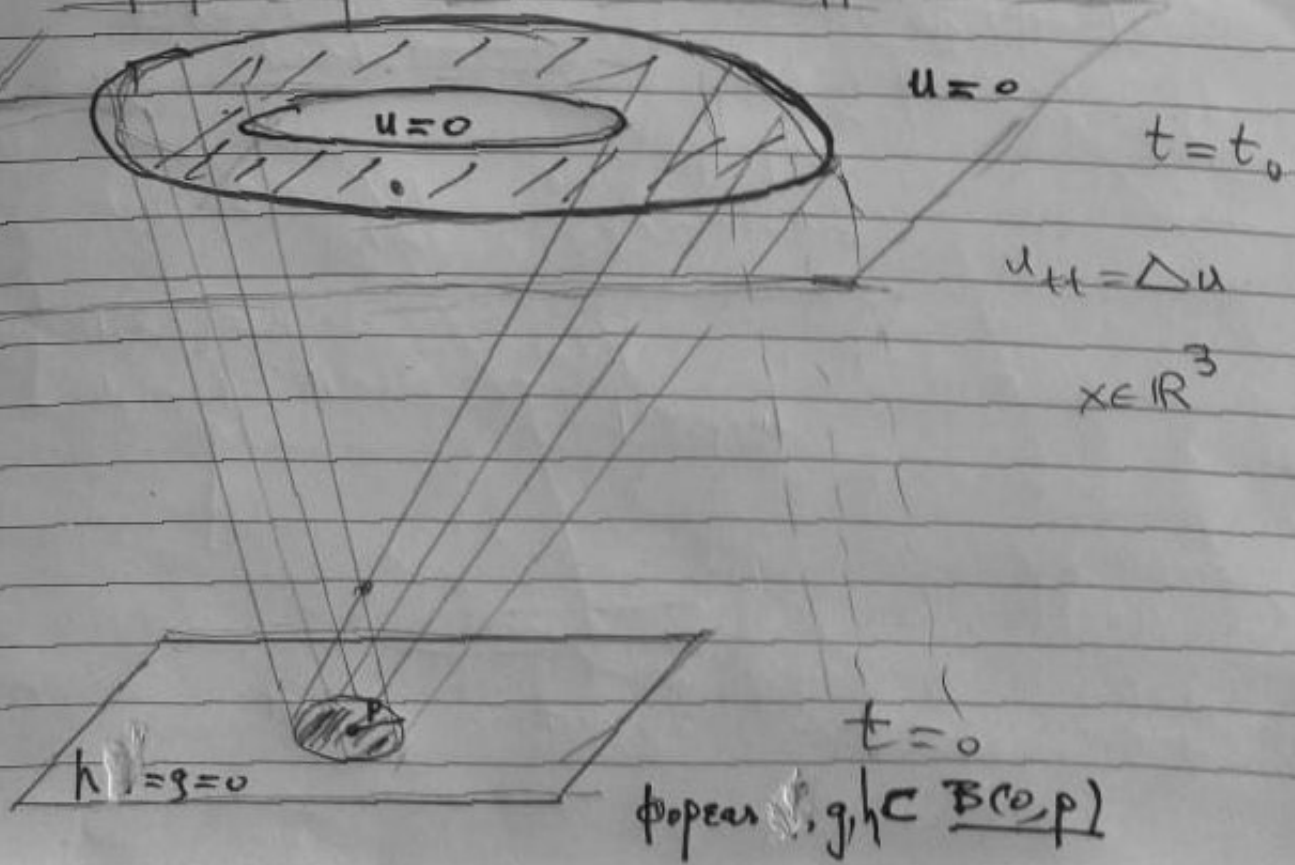 u=0
u=0
t=t₀
uₜₜ=Δu
x∈ℝ³
ρ
t=0
h =g=0
φορεας , g,h⊂ B(0,ρ)